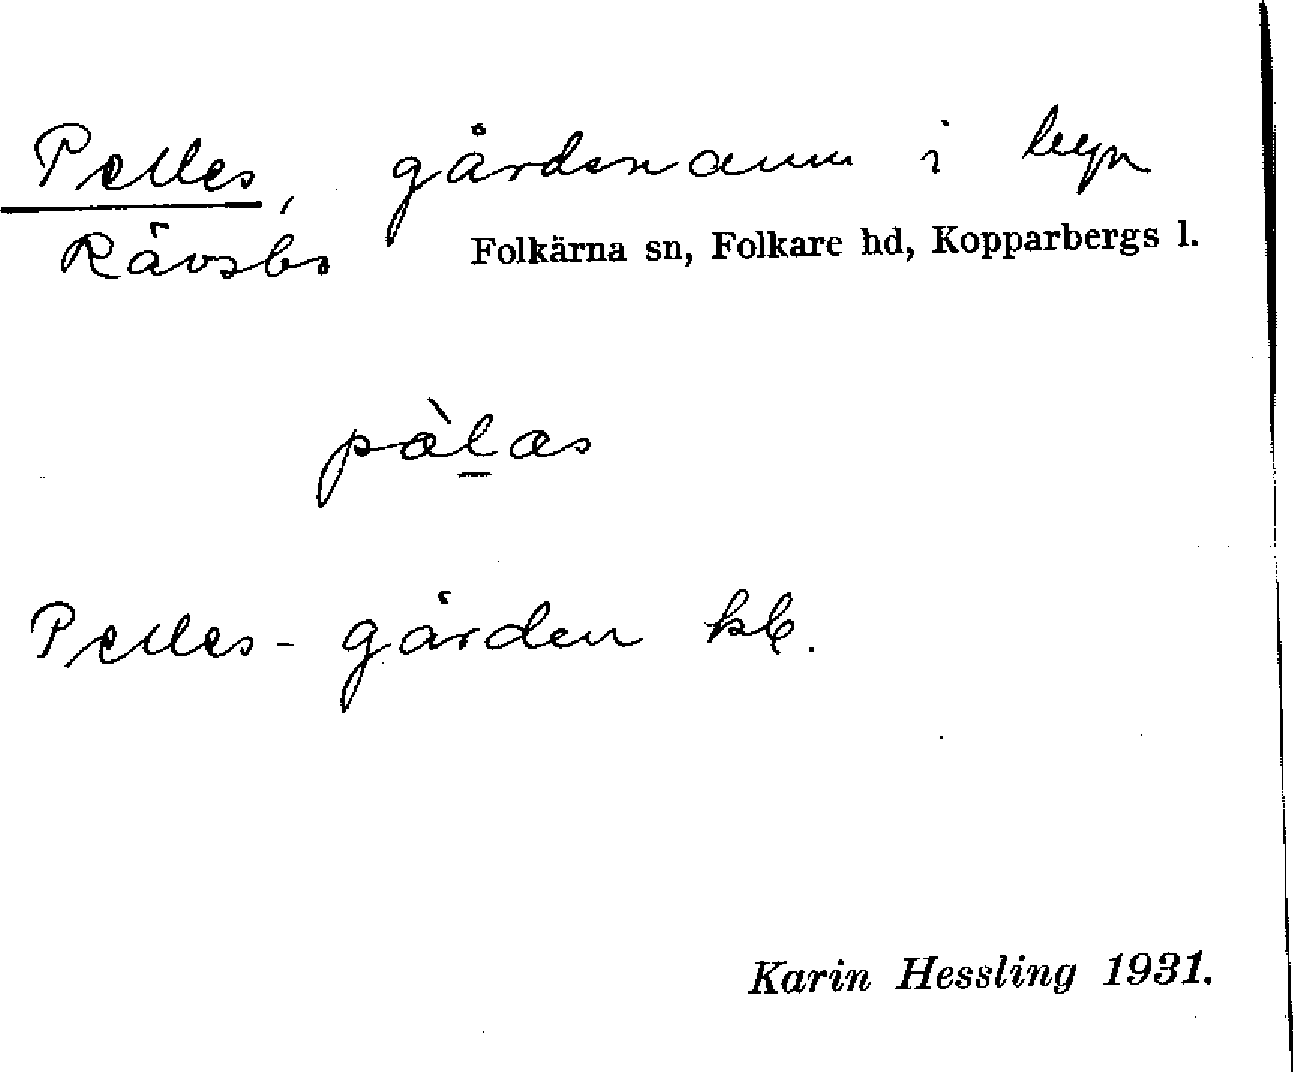 Pelles, gårdsnamn i byn
Rävsbo Folkärna sn, Folkare hd, Kopparbergs l.
pàlas
Pelles-gården kb.
Karin Hessling 1931.